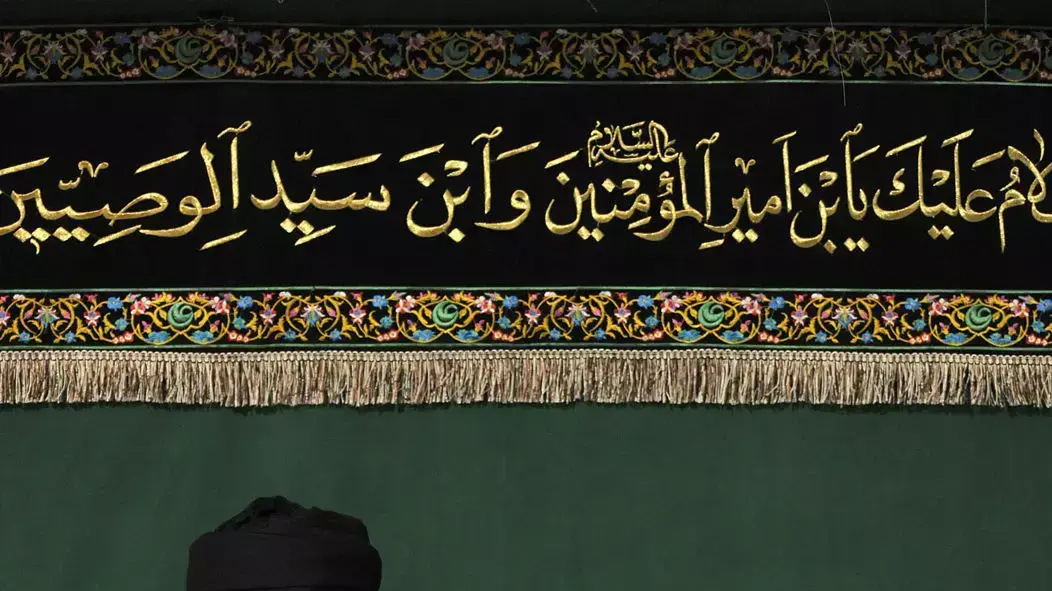 لامُ عَلَيْكَ يَا بْنَ اَميرِ الْمُؤْمِنينَ عَلَيْهِ السَّلام وَابْنَ سَيِّدِ الْوَصِيّينَ